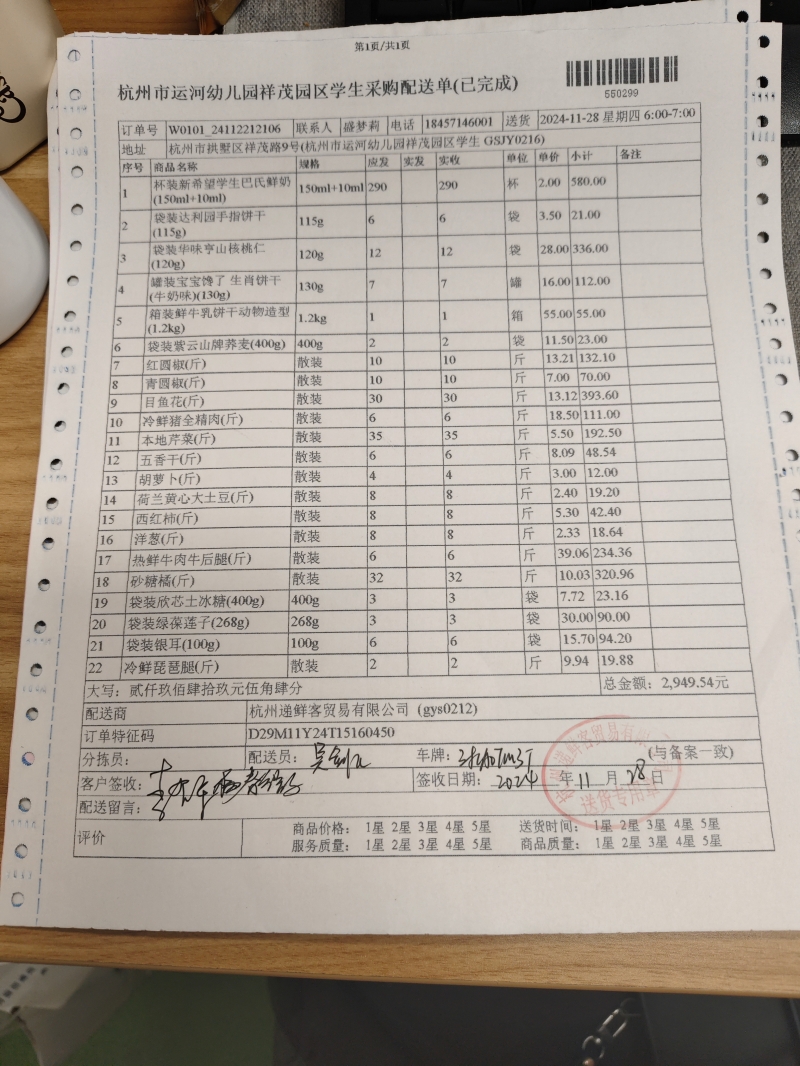 第1页/共1页
杭州市运河幼儿园祥茂园区学生采购配送单(已完成)
550299
订单号 W0101_24112212106 联系人 盛梦莉 电话 18457146001 送货 2024-11-28 星期四 6:00-7:00
地址 杭州市拱墅区祥茂路9号(杭州市运河幼儿园祥茂园区学生 GSJY0216)
序号 商品名称 规格 应发 实发 实收 单位 单价 小计 备注
1 杯装新希望学生巴氏鲜奶(150ml+10ml) 150ml+10ml 290 290 杯 2.00 580.00
2 袋装达利园手指饼干(115g) 115g 6 6 袋 3.50 21.00
3 袋装华味亨山核桃仁(120g) 120g 12 12 袋 28.00 336.00
4 罐装宝宝馋了 生肖饼干(牛奶味)(130g) 130g 7 7 罐 16.00 112.00
5 箱装鲜牛乳饼干动物造型(1.2kg) 1.2kg 1 1 箱 55.00 55.00
6 袋装紫云山牌荞麦(400g) 400g 2 2 袋 11.50 23.00
7 红圆椒(斤) 散装 10 10 斤 13.21 132.10
8 青圆椒(斤) 散装 10 10 斤 7.00 70.00
9 目鱼花(斤) 散装 30 30 斤 13.12 393.60
10 冷鲜猪全精肉(斤) 散装 6 6 斤 18.50 111.00
11 本地芹菜(斤) 散装 35 35 斤 5.50 192.50
12 五香干(斤) 散装 6 6 斤 8.09 48.54
13 胡萝卜(斤) 散装 4 4 斤 3.00 12.00
14 荷兰黄心大土豆(斤) 散装 8 8 斤 2.40 19.20
15 西红柿(斤) 散装 8 8 斤 5.30 42.40
16 洋葱(斤) 散装 8 8 斤 2.33 18.64
17 热鲜牛肉牛后腿(斤) 散装 6 6 斤 39.06 234.36
18 砂糖橘(斤) 散装 32 32 斤 10.03 320.96
19 袋装欣芯土冰糖(400g) 400g 3 3 袋 7.72 23.16
20 袋装绿葆莲子(268g) 268g 3 3 袋 30.00 90.00
21 袋装银耳(100g) 100g 6 6 袋 15.70 94.20
22 冷鲜琵琶腿(斤) 散装 2 2 斤 9.94 19.88
大写：贰仟玖佰肆拾玖元伍角肆分 总金额：2,949.54元
配送商 杭州递鲜客贸易有限公司 (gys0212)
订单特征码 D29M11Y24T15160450
分拣员： 配送员： 车牌： (与备案一致)
客户签收： 签收日期： 2024 年 11 月 28 日
配送留言：
评价 商品价格： 1星 2星 3星 4星 5星 送货时间： 1星 2星 3星 4星 5星
服务质量： 1星 2星 3星 4星 5星 商品质量： 1星 2星 3星 4星 5星
送货专用章